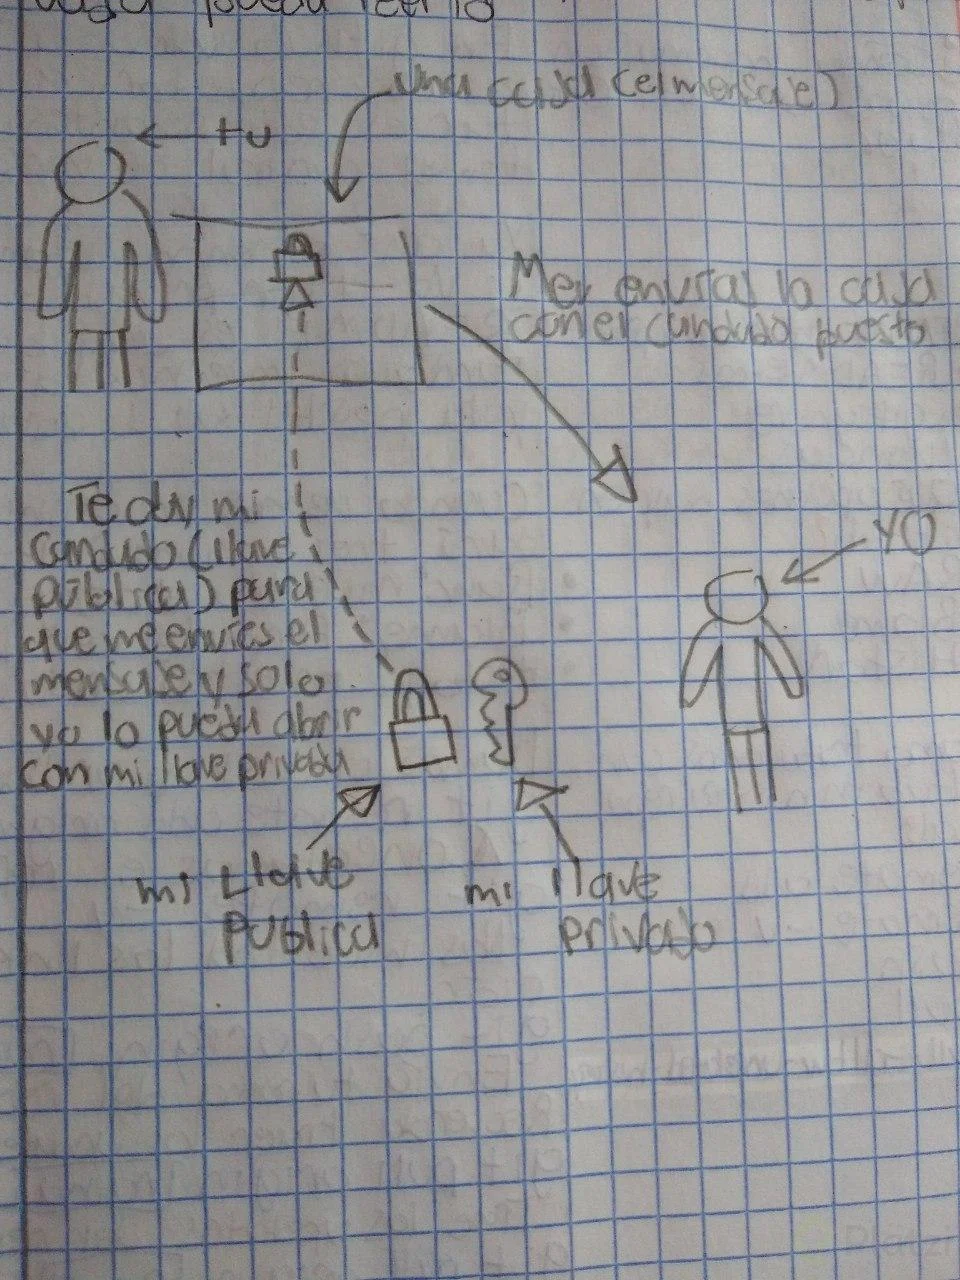 pueda leerlo
una caja (el mensaje)
tu
Me envías la caja
con el candado puesto
Te doy mi
candado (llave
pública) para
que me envíes el
mensaje y solo
yo lo pueda abrir
con mi llave privada
YO
mi Llave
publica
mi llave
privada